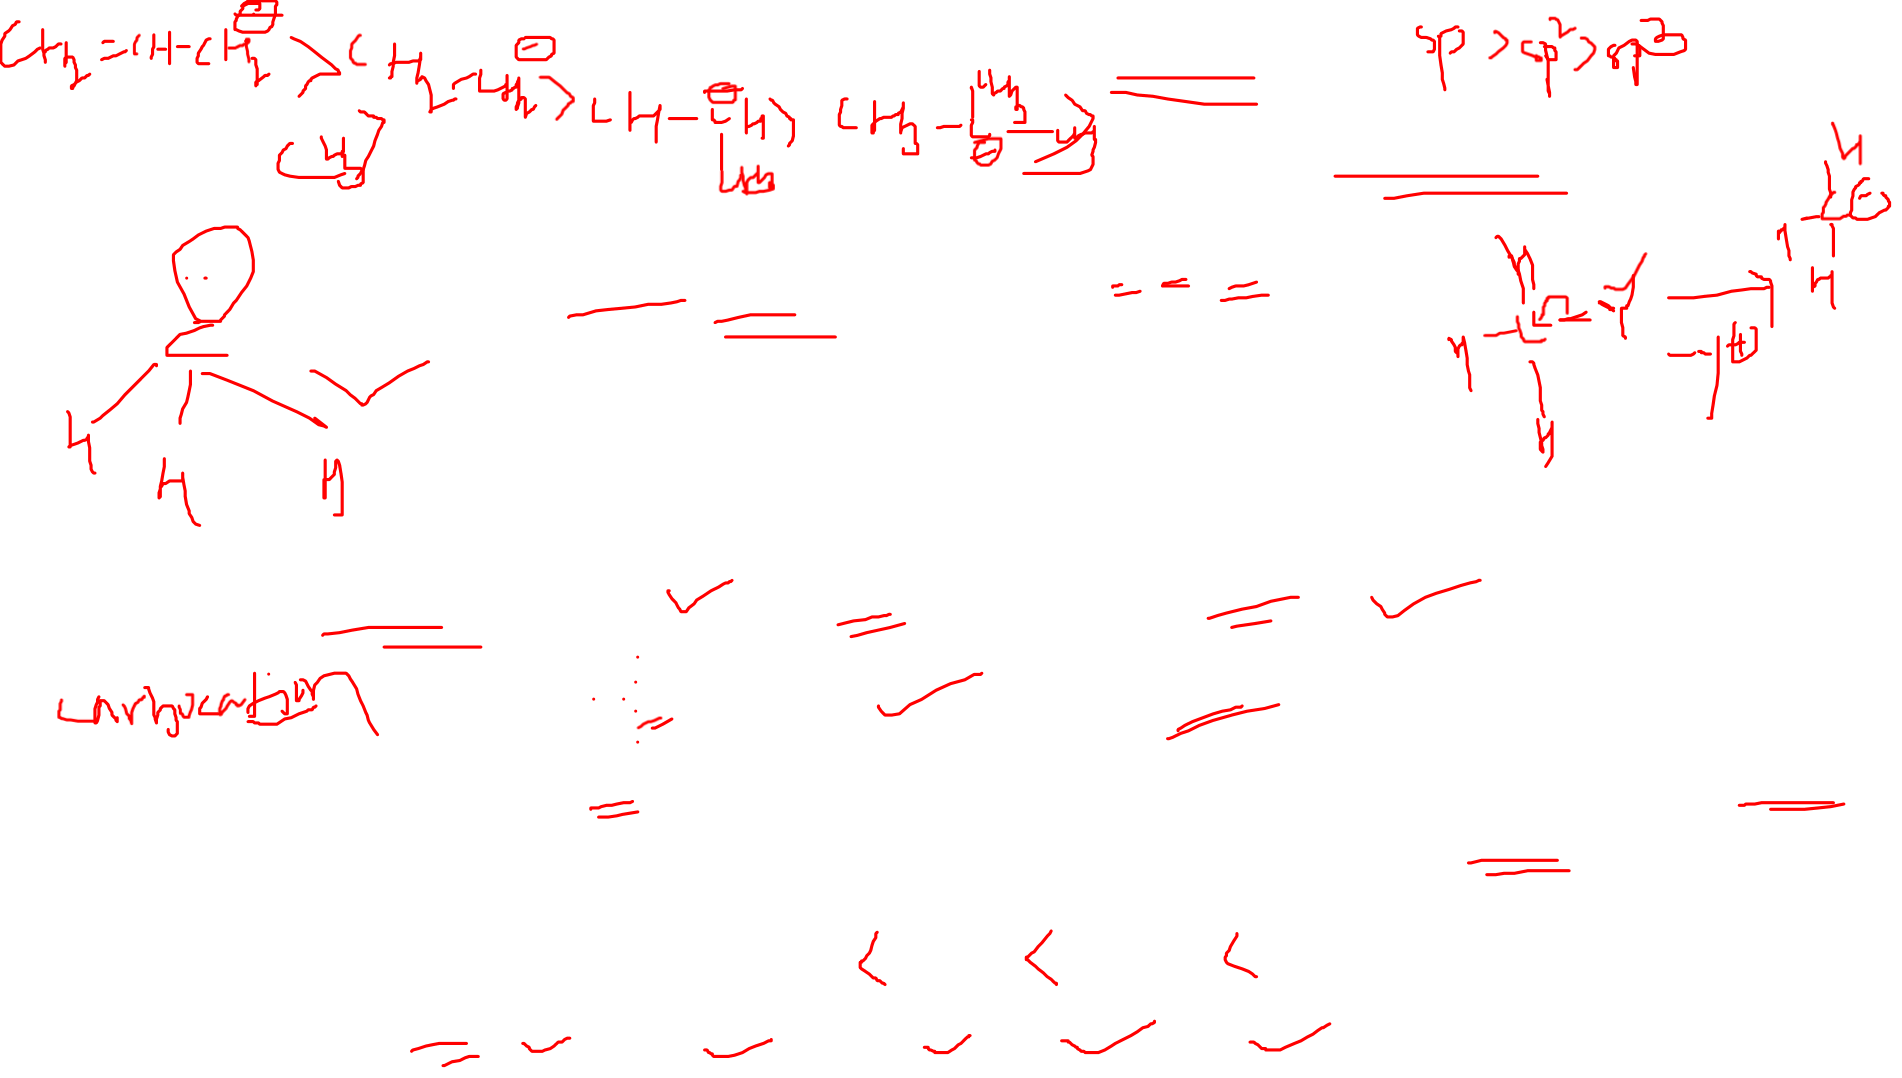 CH2=CH-CH2 > CH2-CH2 > CH-CH > CH3-C-CH
⊖ ⊖ ⊖ CH3
CH3 CH3 ⊖
sp > sp2 > sp3
H
H C ⊖
H
H
H C - Y →
H
-Y ⊕
C
H H H
carbocation
< < <